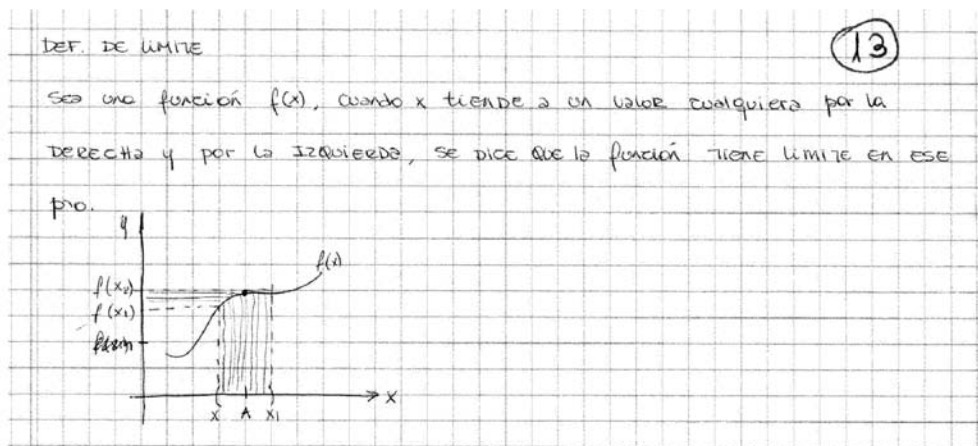 DEF. DE LIMITE
13
Sea una función f(x), cuando x tiende a un valor cualquiera por la
DERECHA y por la IZQUIERDA, se dice que la función tiene limite en ese
pto.
y
f(x)
f(x₂)
f(x₁)
x
x A x₁